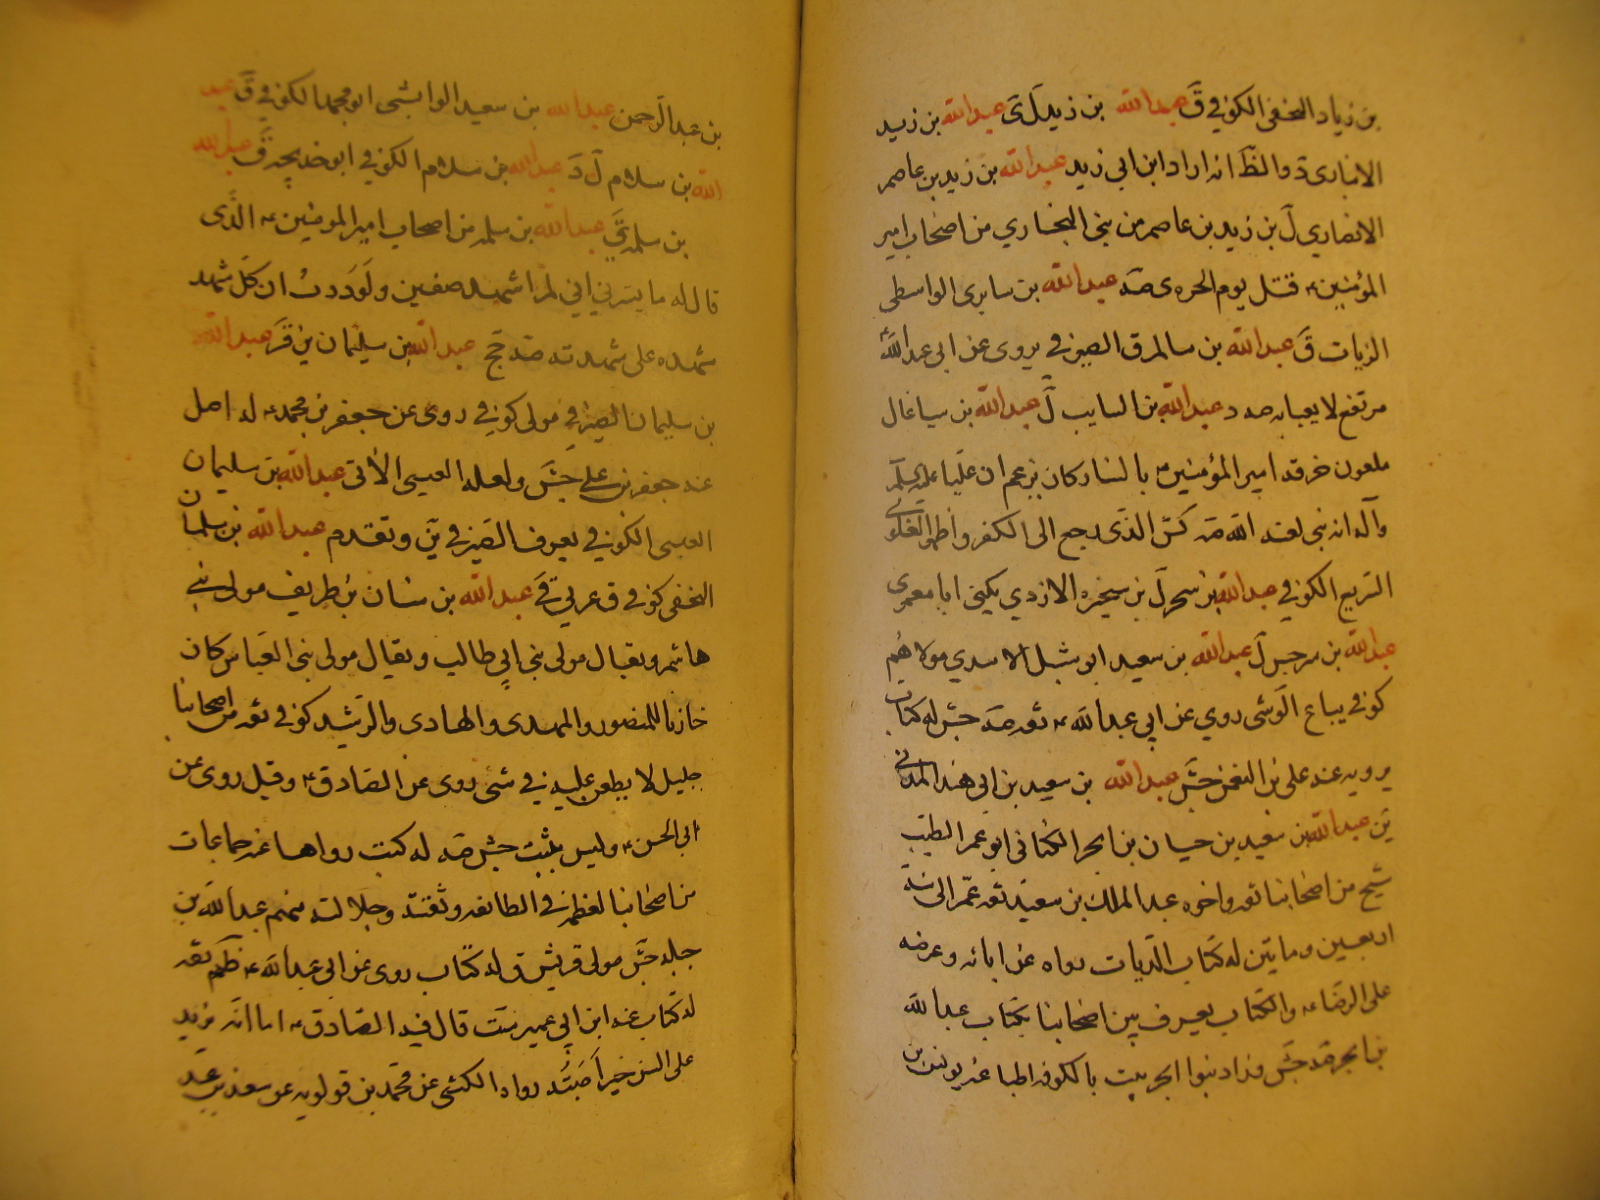 بن زياد النخفى الكوفي ق عبدالله بن زيد ل ى عبدالله بن زيد
الانبارى د والظ انه اراد ابن ابي زيد عبدالله بن زيد بن عاصم
الانصاري ل بن زيد بن عاصم من بنى النجاري من اصحاب امير
المؤمنين ع قتل يوم الحره ى صه عبدالله بن سابرى الواسطى
الزيات ق عبدالله بن سالم ق الصيرفي يروى عن ابى عبدالله ع
مرتفع لا يعبا به صه د عبدالله بن السايب ل عبدالله بن سبا غال
ملعون حرقه امير المؤمنين ع بالنار كان يزعم ان عليا
وآله انه نبى لعنه الله صه كش الذى رجع الى الكفر واظهر الغلو ى
الكوفي عبدالله بن سخبره الازدي يكنى ابا معمر ى
عبدالله بن سرجس ل عبدالله بن سعيد ابو شبل الاسدي مولاهم
كوفي بياع الوشى روي عن ابي عبدالله ع ثقه صه جش له كتاب
يرويه عنه على بن النعمن جش عبدالله بن سعيد بن ابى هند المدني
ين عبدالله بن سعيد بن حيان بن ابجر الكناني ابو عمر الطبيب
شيخ من اصحابنا ثقه واخوه عبد الملك بن سعيد ثقه عمر الى سنة
اربعين ومايتين له كتاب الديات رواه عن ابائه وعرضه
على الرضا ع والكتاب يعرف بين اصحابنا بكتاب عبدالله
بن ابجر صه جش وزاد بنوا ابجر بيت بالكوفه اطبا عنه يونس بن
بن عبد الرحمن عبدالله بن سعيد الوابشى ابو محمد الكوفي ق عبد
الله بن سلام ل د عبدالله بن سلام الكوفي ابو خديجه ق عبدالله
بن سلمه ي عبدالله بن سلمه من اصحاب امير المومنين ع الذى
قال له ما يسرني اني لم اشهد صفين ولوددت ان كل شهد
شهده على شهدته صه جخ عبدالله بن سليمان ين قر عبدالله
بن سليمان الصيرفي مولى كوفي روى عن جعفر بن محمد ع له اصل
عنه جعفر بن على جش ولعله العبسى الاتى عبدالله بن سليمان
العبسى الكوفي يعرف الصيرفي ين وتقدم عبدالله بن سلمان
النخفى كوفي ق عربي ق عبدالله بن سنان بن طريف مولى بني
هاشم ويقال مولى بني ابي طالب ويقال مولى بنى العباس كان
خازنا للمنصور والمهدى والهادى والرشيد كوفي ثقه من اصحابنا
جليل لا يطعن عليه في شئ روى عن الصادق ع وقيل روى عن
ابى الحسن ع وليس بثبت جش صه له كتب رواها عنه جماعات
من اصحابنا لعظمه في الطائفه وثقته وجلالته منهم عبدالله بن
جبله جش مولى قريش ق له كتاب روى عن ابي عبدالله ع ثقه
له كتاب عنه ابن ابي عمير ست قال فيه الصادق ع اما انه يزيد
على السن خيرا صه رواه الكشي عن محمد بن قولويه عن سعد بن عبد